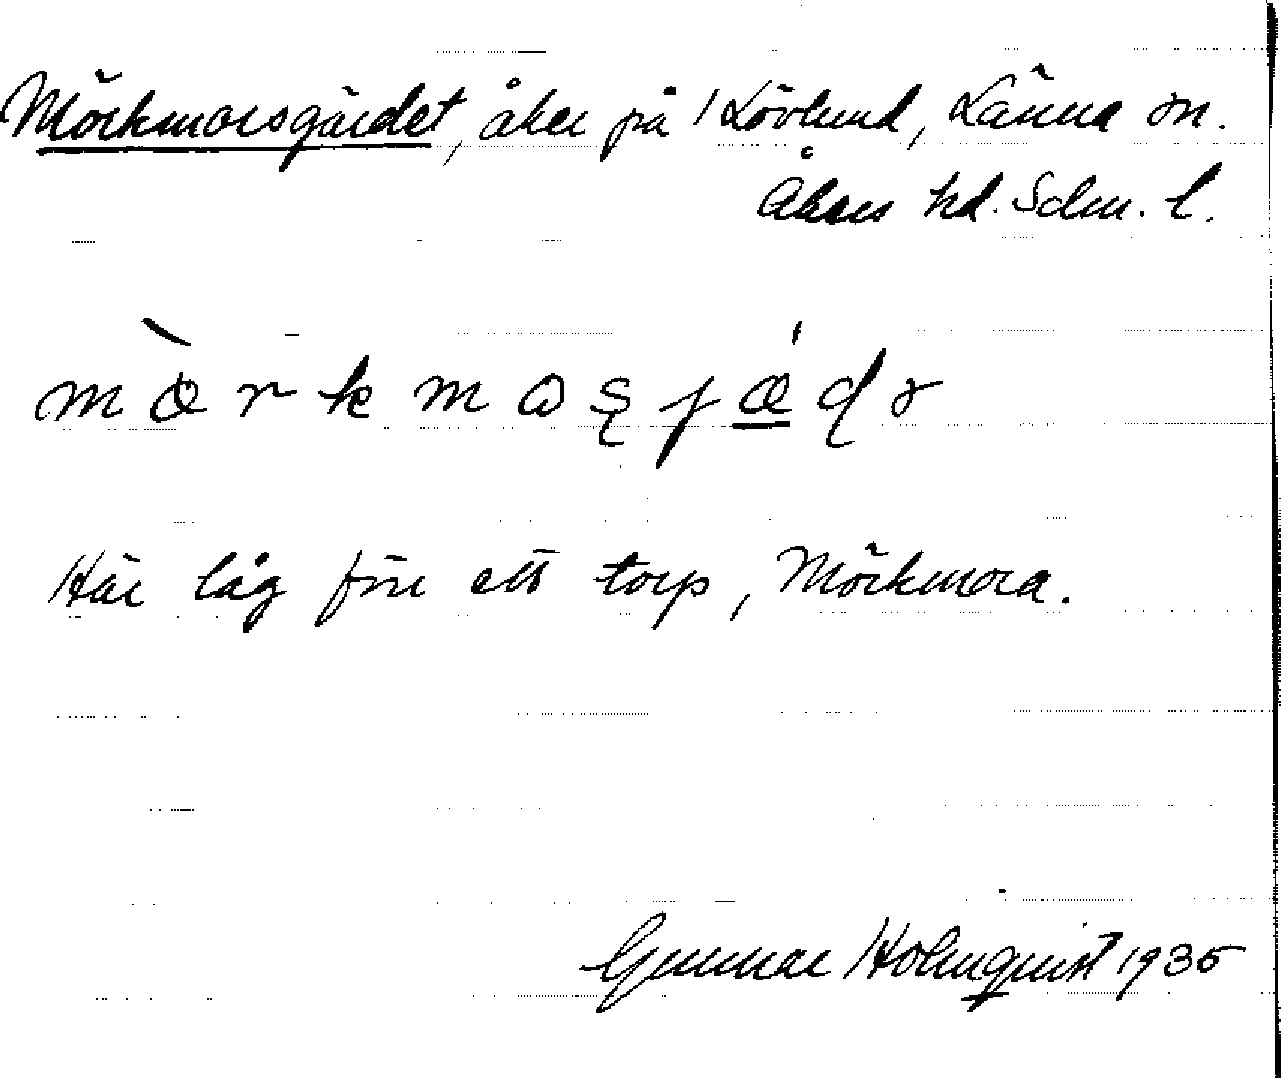 Mörkmorsgärdet, åker på 1 Lövlund, Länna sn.
Åkers hd. Sdm. l.
Här låg förr ett torp, Mörkmora.
Gunnar Holmquist 1935